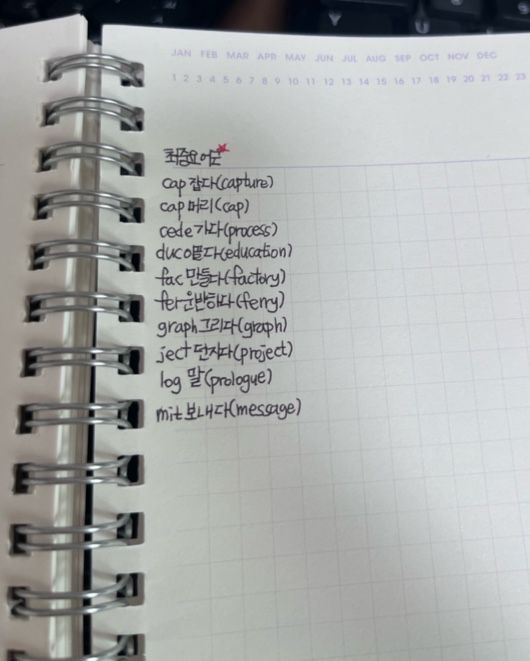 JAN FEB MAR APR MAY JUN JUL AUG SEP OCT NOV DEC
1 2 3 4 5 6 7 8 9 10 11 12 13 14 15 16 17 18 19 20 21 22 23
최중요 어근
cap 잡다(capture)
cap 머리(cap)
cede 가다(process)
duco 끌다(education)
fac 만들다(factory)
fer 운반하다(ferry)
graph 그리다(graph)
ject 던지다(project)
log 말(prologue)
mit 보내다(message)